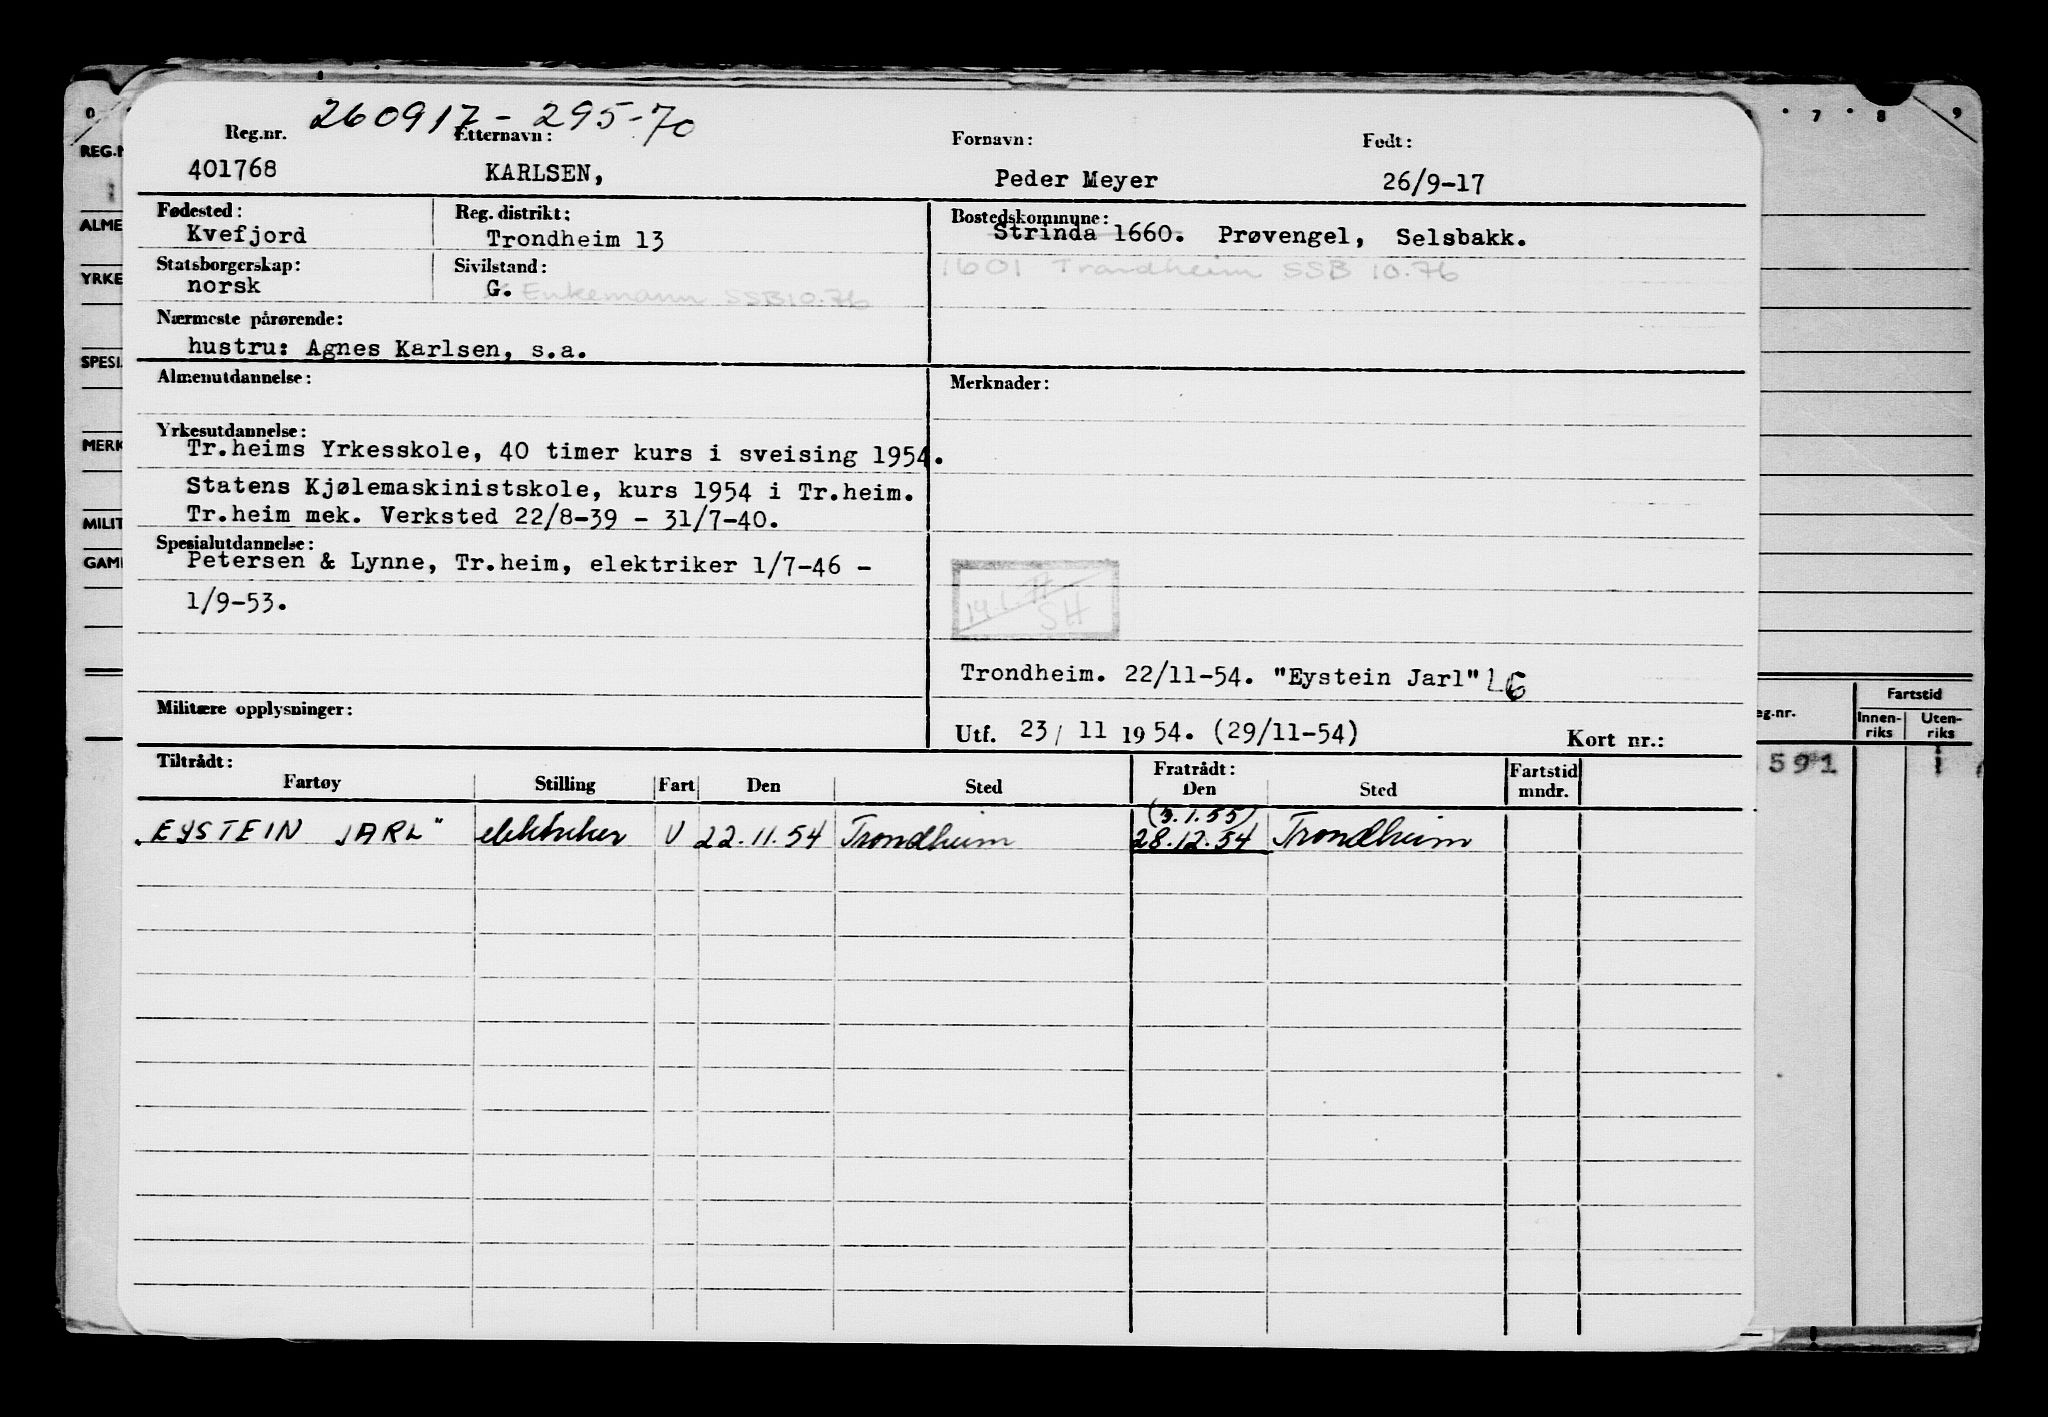 260917-295-70
Reg.nr. Etternavn: Fornavn: Født:
401768 KARLSEN, Peder Meyer 26/9-17
Fødested: Reg. distrikt: Bostedskommune:
Kvefjord Trondheim 13 Strinda 1660. Prøvengel, Selsbakk.
Statsborgerskap: Sivilstand: 1601 Trondheim SSB 10.76
norsk G. Enkemann SSB 10.76
Nærmeste pårørende:
hustru: Agnes Karlsen, s.a.
Almenutdannelse: Merknader:
Yrkesutdannelse:
Tr.heims Yrkesskole, 40 timer kurs i sveising 1954.
Statens Kjølemaskinistskole, kurs 1954 i Tr.heim.
Tr.heim mek. Verksted 22/8-39 - 31/7-40.
Spesialutdannelse:
Petersen & Lynne, Tr.heim, elektriker 1/7-46 -
1/9-53.
SH
Trondheim. 22/11-54. "Eystein Jarl"
Militære opplysninger:
Utf. 23/ 11 19 54. (29/11-54) Kort nr.:
Tiltrådt: Fratrådt: Fartstid
Fartøy Stilling Fart Den Sted Den Sted mndr.
(3.1.55)
"EYSTEIN JARL" elektriker U 22.11.54 Trondheim 28.12.54 Trondheim
0
REG.N
ALME
YRKE
SPESI
MERK
MILIT
GAM
7 8 9
eg.nr. Fartstid
Innen- Uten-
riks riks
591 1